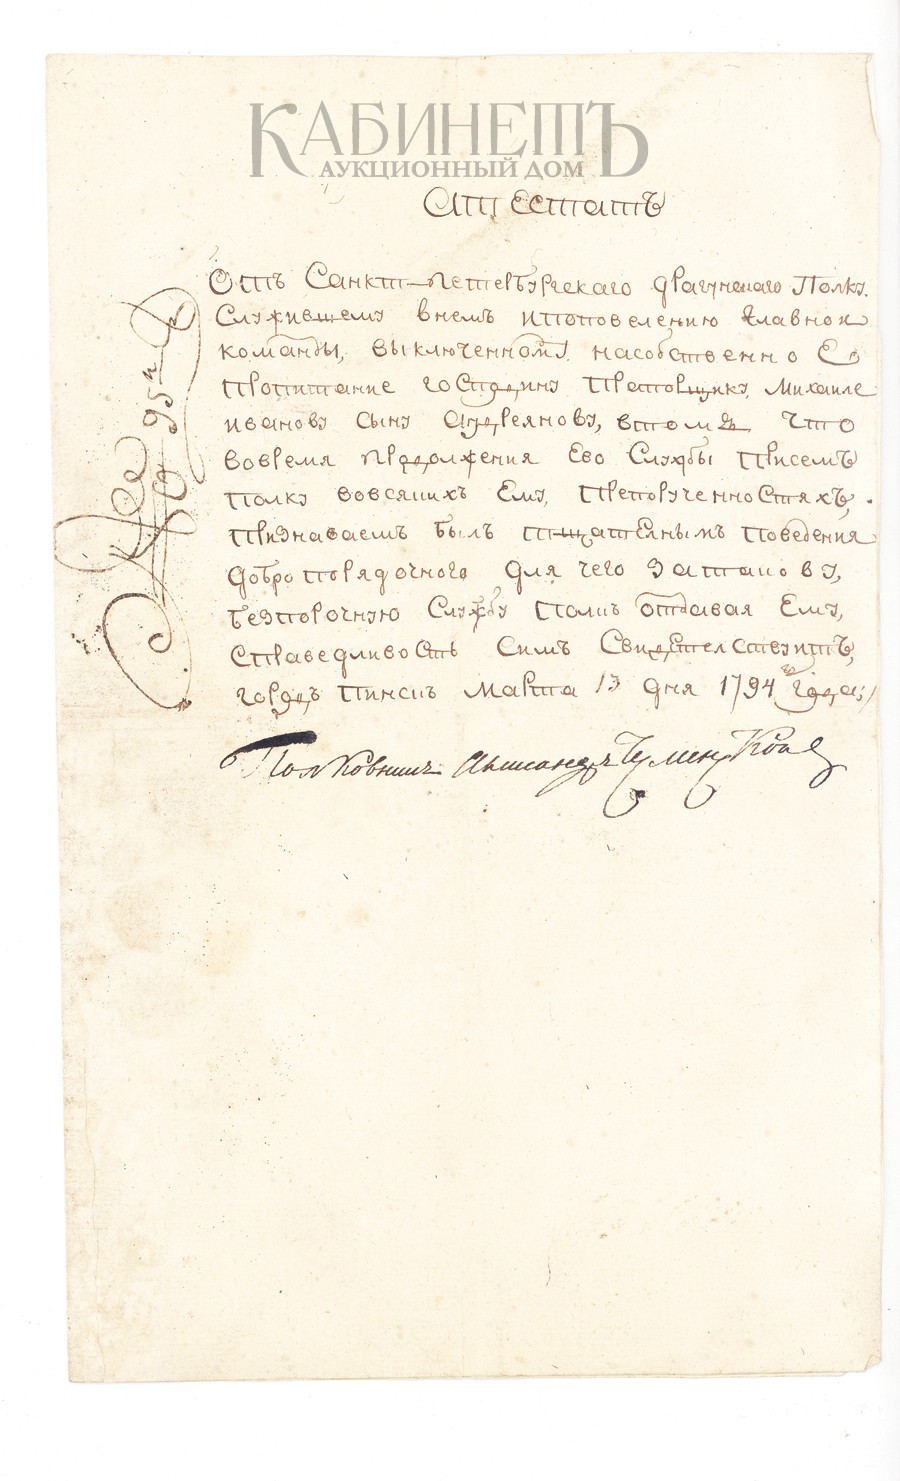 КАБИНЕТЪ
АУКЦИОННЫЙ ДОМ
Атестатъ
Отъ Санктъ-петербургскаго драгунскаго Полку.
Служившему внемъ ипоповелению главной
команды, выключенному насобственно Ево
пропитание господину Михаиле
иванову сыну андреянову, втомъ что
вовремя продолжения Ево Службы присемъ
полку вовсяких Ему, препорученностяхъ,
признаваемъ былъ тщателнымъ поведения
добропорядочного для чего затакову,
безпорочную Службу полкъ отдавая Ему,
справедливость Симъ Свидетелствуитъ,
городъ пинскъ марта 13 дня 1794 года
Полковникъ Александръ
№ 95